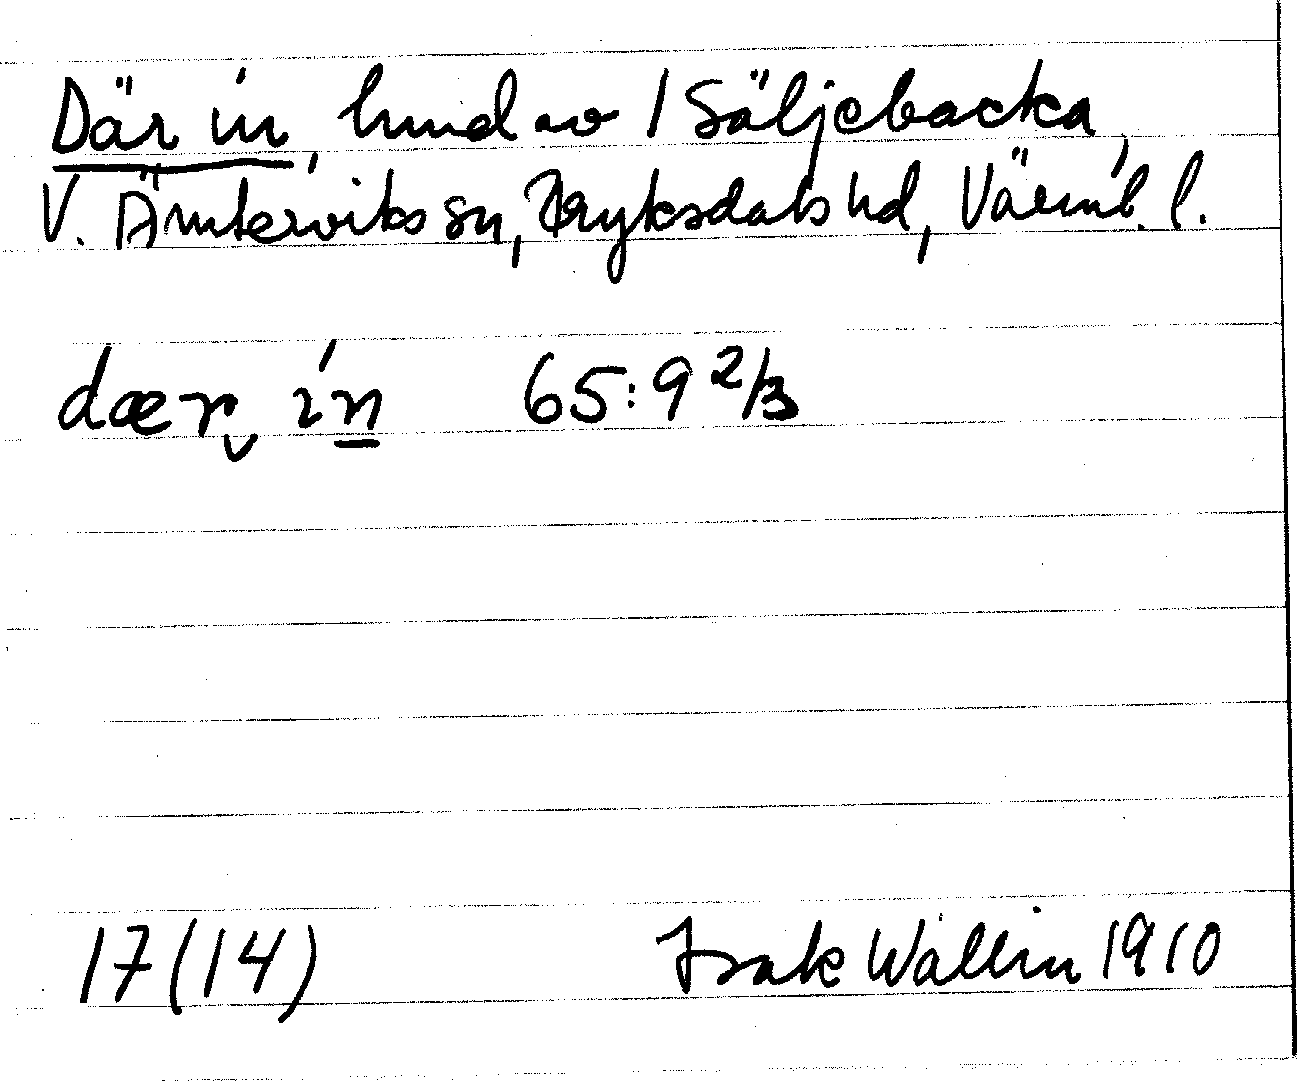 Där in, hmd av 1 Säljebacka,
V. Ämterviks sn, Fryksdals hd, Värml. l.
dær in 65:9 2/3
17(14) Isak Wallin 1910